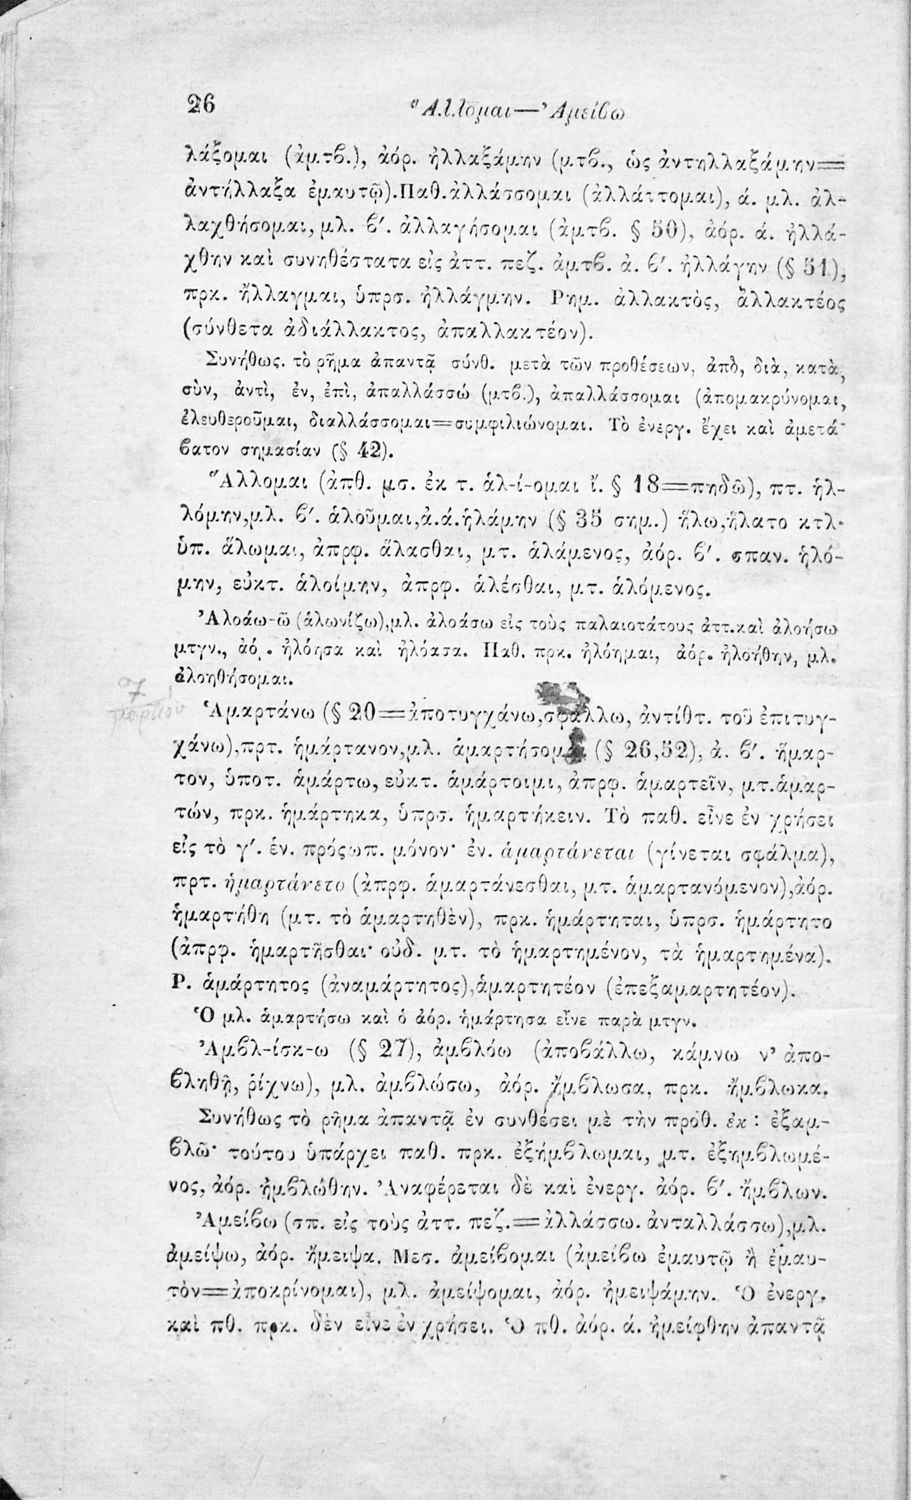 26 Ἅλλομαι—Ἀμείβω
λάξομαι (ἀμτβ.), ἀόρ. ἠλλαξάμην (μτβ., ὡς ἀντηλλαξάμην=
ἀντήλλαξα ἐμαυτῷ). Παθ. ἀλλάσσομαι (ἀλλάττομαι), ά. μλ. ἀλ-
λαχθήσομαι, μλ. β′. ἀλλαγήσομαι (ἀμτβ. § 50), ἀόρ. ά. ἠλλά-
χθην καὶ συνηθέστατα εἰς ἀττ. πεζ. ἀμτβ. ἀ. β′. ἠλλάγην (§ 51),
πρκ. ἤλλαγμαι, ὑπρσ. ἠλλάγμην. Ρημ. ἀλλακτὸς, ἀλλακτέος
(σύνθετα ἀδιάλλακτος, ἀπαλλακτέον).
Συνήθως. τὸ ρῆμα ἀπαντᾷ σύνθ. μετὰ τῶν προθέσεων, ἀπὸ, διὰ, κατὰ,
σὺν, ἀντὶ, ἐν, ἐπὶ, ἀπαλλάσσώ (μτβ.), ἀπαλλάσσομαι (ἀπομακρύνομαι,
ἐλευθεροῦμαι, διαλλάσσομαι=συμφιλιώνομαι. Τὸ ἐνεργ. ἔχει καὶ ἀμετά-
βατον σημασίαν (§ 42).
Ἅλλομαι (ἀπθ. μσ. ἐκ τ. ἁλ-ί-ομαι ἴ. § 18=πηδῶ), πτ. ἡλ-
λόμην, μλ. β′. ἁλοῦμαι, ἀ. ά. ἡλάμην (§ 35 σημ.) ἥλω, ἥλατο κτλ.
ὑπ. ἅλωμαι, ἀπρφ. ἅλασθαι, μτ. ἁλάμενος, ἀόρ. β′. σπαν. ἡλό-
μην, εὐκτ. ἁλοίμην, ἀπρφ. ἁλέσθαι, μτ. ἁλόμενος.
Ἀλοάω-ῶ (ἁλωνίζω), μλ. ἀλοάσω εἰς τοὺς παλαιοτάτους ἀττ. καὶ ἀλοήσω
μτγν., ἀό. . ἠλόησα καὶ ἠλόασα. Παθ. πρκ. ἠλόημαι, ἀόρ. ἠλοήθην, μλ.
ἀλοηθήσομαι.
Ἁμαρτάνω (§ 20=ἀποτυγχάνω, σφάλλω, ἀντίθτ. τοῦ ἐπιτυγ-
χάνω), πρτ. ἡμάρτανον, μλ. ἁμαρτήσομαι (§ 26,52), ἀ. β′. ἥμαρ-
τον, ὑποτ. ἁμάρτω, εὐκτ. ἁμάρτοιμι, ἀπρφ. ἁμαρτεῖν, μτ. ἁμαρ-
τών, πρκ. ἡμάρτηκα, ὑπρσ. ἡμαρτήκειν. Τὸ παθ. εἶνε ἐν χρήσει
εἰς τὸ γ′. ἑν. πρόσωπ. μόνον· ἐν. ἁμαρτάνεται (γίνεται σφάλμα),
πρτ. ἡμαρτάνετο (ἀπρφ. ἁμαρτάνεσθαι, μτ. ἁμαρτανόμενον), ἀόρ.
ἡμαρτήθη (μτ. τὸ ἁμαρτηθὲν), πρκ. ἡμάρτηται, ὑπρσ. ἡμάρτητο
(ἀπρφ. ἡμαρτῆσθαι· οὐδ. μτ. τὸ ἡμαρτημένον, τὰ ἡμαρτημένα).
Ρ. ἁμάρτητος (ἀναμάρτητος), ἁμαρτητέον (ἐπεξαμαρτητέον).
Ὁ μλ. ἁμαρτήσω καὶ ὁ ἀόρ. ἡμάρτησα εἶνε παρὰ μτγν.
Ἀμβλ-ίσκ-ω (§ 27), ἀμβλόω (ἀποβάλλω, κάμνω ν’ ἀπο-
βληθῇ, ῥίχνω), μλ. ἀμβλώσω, ἀόρ. ἤμβλωσα, πρκ. ἤμβλωκα.
Συνήθως τὸ ρῆμα ἀπαντᾷ ἐν συνθέσει μὲ τὴν πρόθ. ἐκ: ἐξαμ-
βλῶ· τούτου ὑπάρχει παθ. πρκ. ἐξήμβλωμαι, μτ. ἐξημβλωμέ-
νος, ἀόρ. ἠμβλώθην. Ἀναφέρεται δὲ καὶ ἐνεργ. ἀόρ. β′. ἤμβλων.
Ἀμείβω (σπ. εἰς τοὺς ἀττ. πεζ.=ἀλλάσσω. ἀνταλλάσσω), μλ.
ἀμείψω, ἀόρ. ἤμειψα. Μεσ. ἀμείβομαι (ἀμείβω ἐμαυτῷ ἢ ἐμαυ-
τὸν=ἀποκρίνομαι), μλ. ἀμείψομαι, ἀόρ. ἠμειψάμην. Ὁ ἐνεργ.
καὶ πθ. πρκ. δὲν εἶνε ἐν χρήσει. Ὁ πθ. ἀόρ. ά. ἠμείφθην ἀπαντᾷ